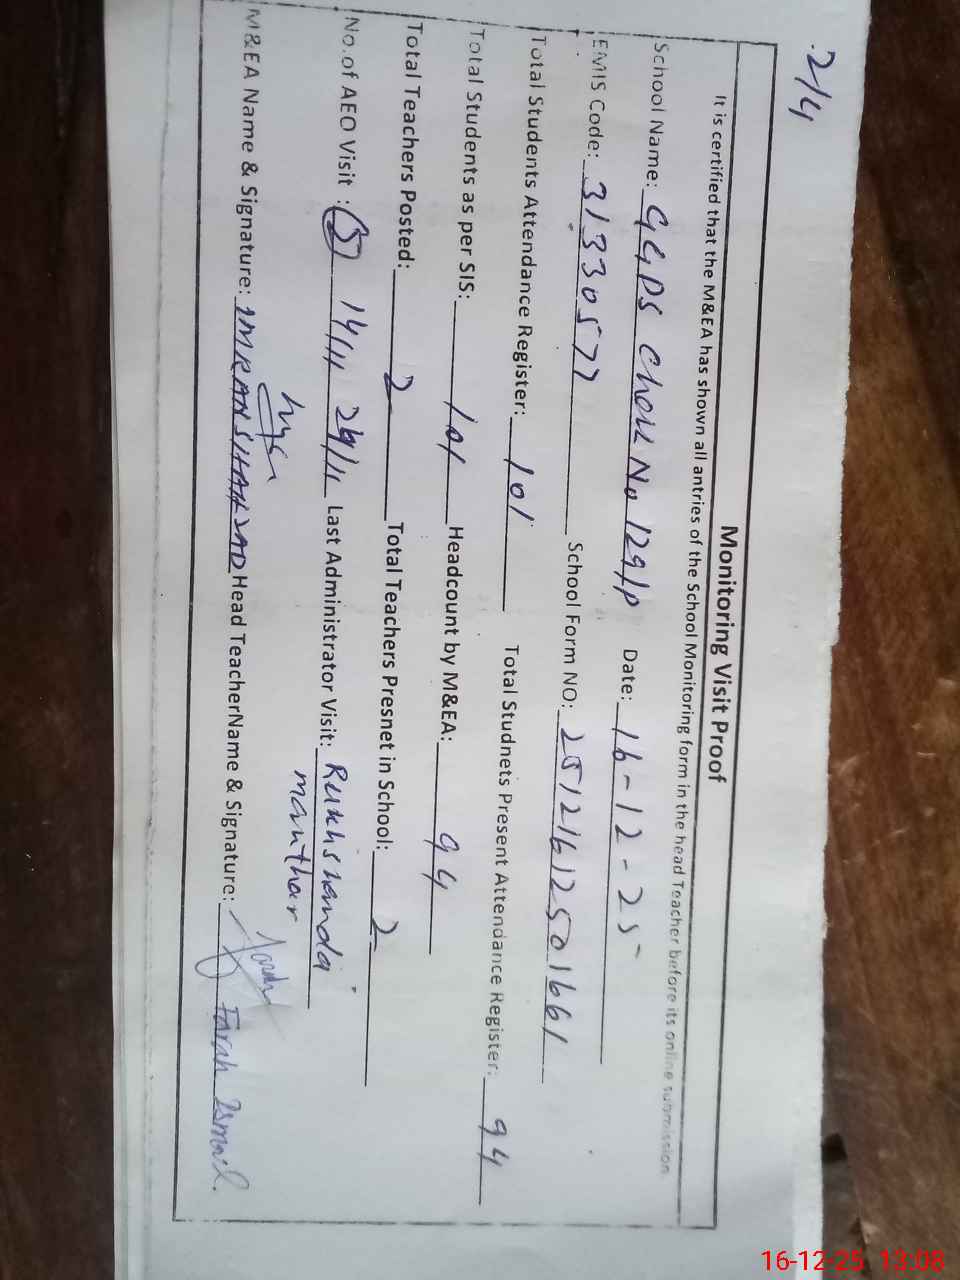 2/4
Monitoring Visit Proof
It is certified that the M&EA has shown all antries of the School Monitoring form in the head Teacher before its online submission
School Name: GGPS Chak No 129/P Date: 16-12-25
EMIS Code: 31330577 School Form NO: 2512161250 1661
Total Students Attendance Register: 101 Total Studnets Present Attendance Register: 94
Total Students as per SIS: 101 Headcount by M&EA: 94
Total Teachers Posted: 2 Total Teachers Presnet in School: 2
No.of AEO Visit : 5 14/11 29/11 Last Administrator Visit: Rukhshanda
manthar
M&EA Name & Signature: IMRAN SHAHZAD Head TeacherName & Signature: Farah Ismail.
16-12-25 13:08